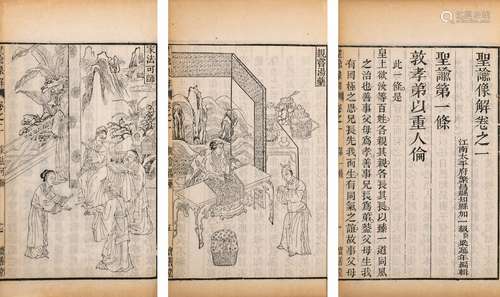 聖諭像解卷之一
江南太平府繁昌縣知縣加一級梁延年編輯
聖諭第一條
敦孝弟以重人倫
此一條是
皇上欲汝等百姓各親其親各長其長以臻一道同風
之治也善事父母爲孝善事兄長爲弟蓋父母
有罔極恩兄長先我而生有同氣之誼故事父母
親嘗湯藥
家法可師
聖諭像解
卷之二
家法可師
七